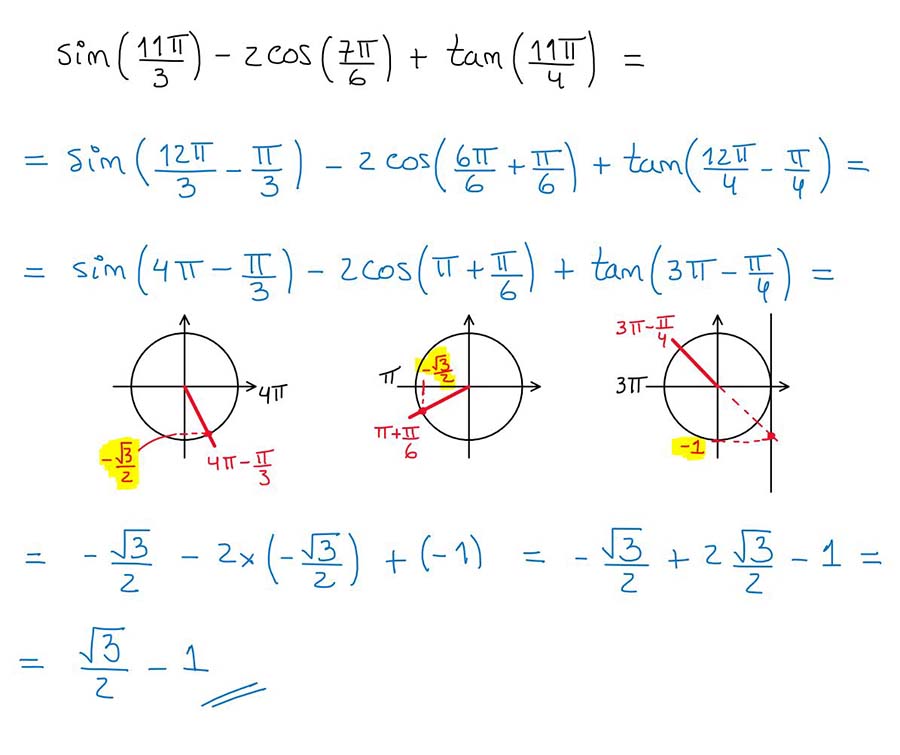 sin(11π/3) - 2cos(7π/6) + tan(11π/4) =
= sin(12π/3 - π/3) - 2cos(6π/6 + π/6) + tan(12π/4 - π/4) =
= sin(4π - π/3) - 2cos(π + π/6) + tan(3π - π/4) =
4π
-√3/2
4π - π/3
π
-√3/2
π + π/6
3π - π/4
3π
-1
= -√3/2 - 2×(-√3/2) + (-1) = -√3/2 + 2√3/2 - 1 =
= √3/2 - 1